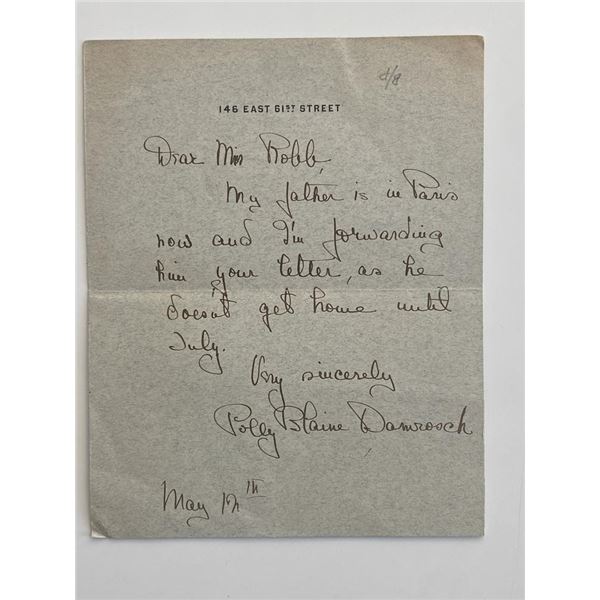 4/8
146 EAST 61ST STREET
Dear Miss Robb,
My father is in Paris
now and I'm forwarding
him your letter, as he
doesn't get home until
July.
Very sincerely
Polly Blaine Damrosch
May 12th